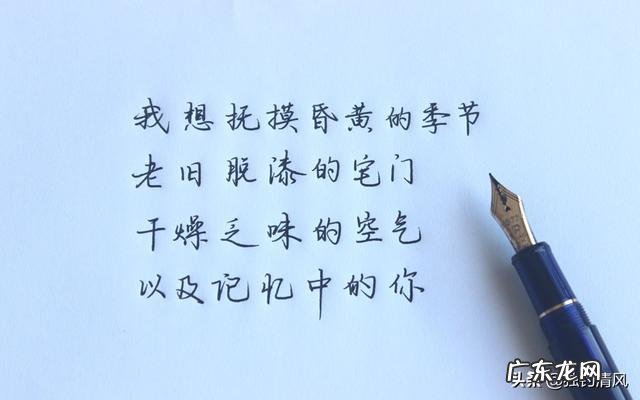 我想抚摸昏黄的季节
老旧脱漆的宅门
干燥乏味的空气
以及记忆中的你
广东龙网
头条@独钓清风